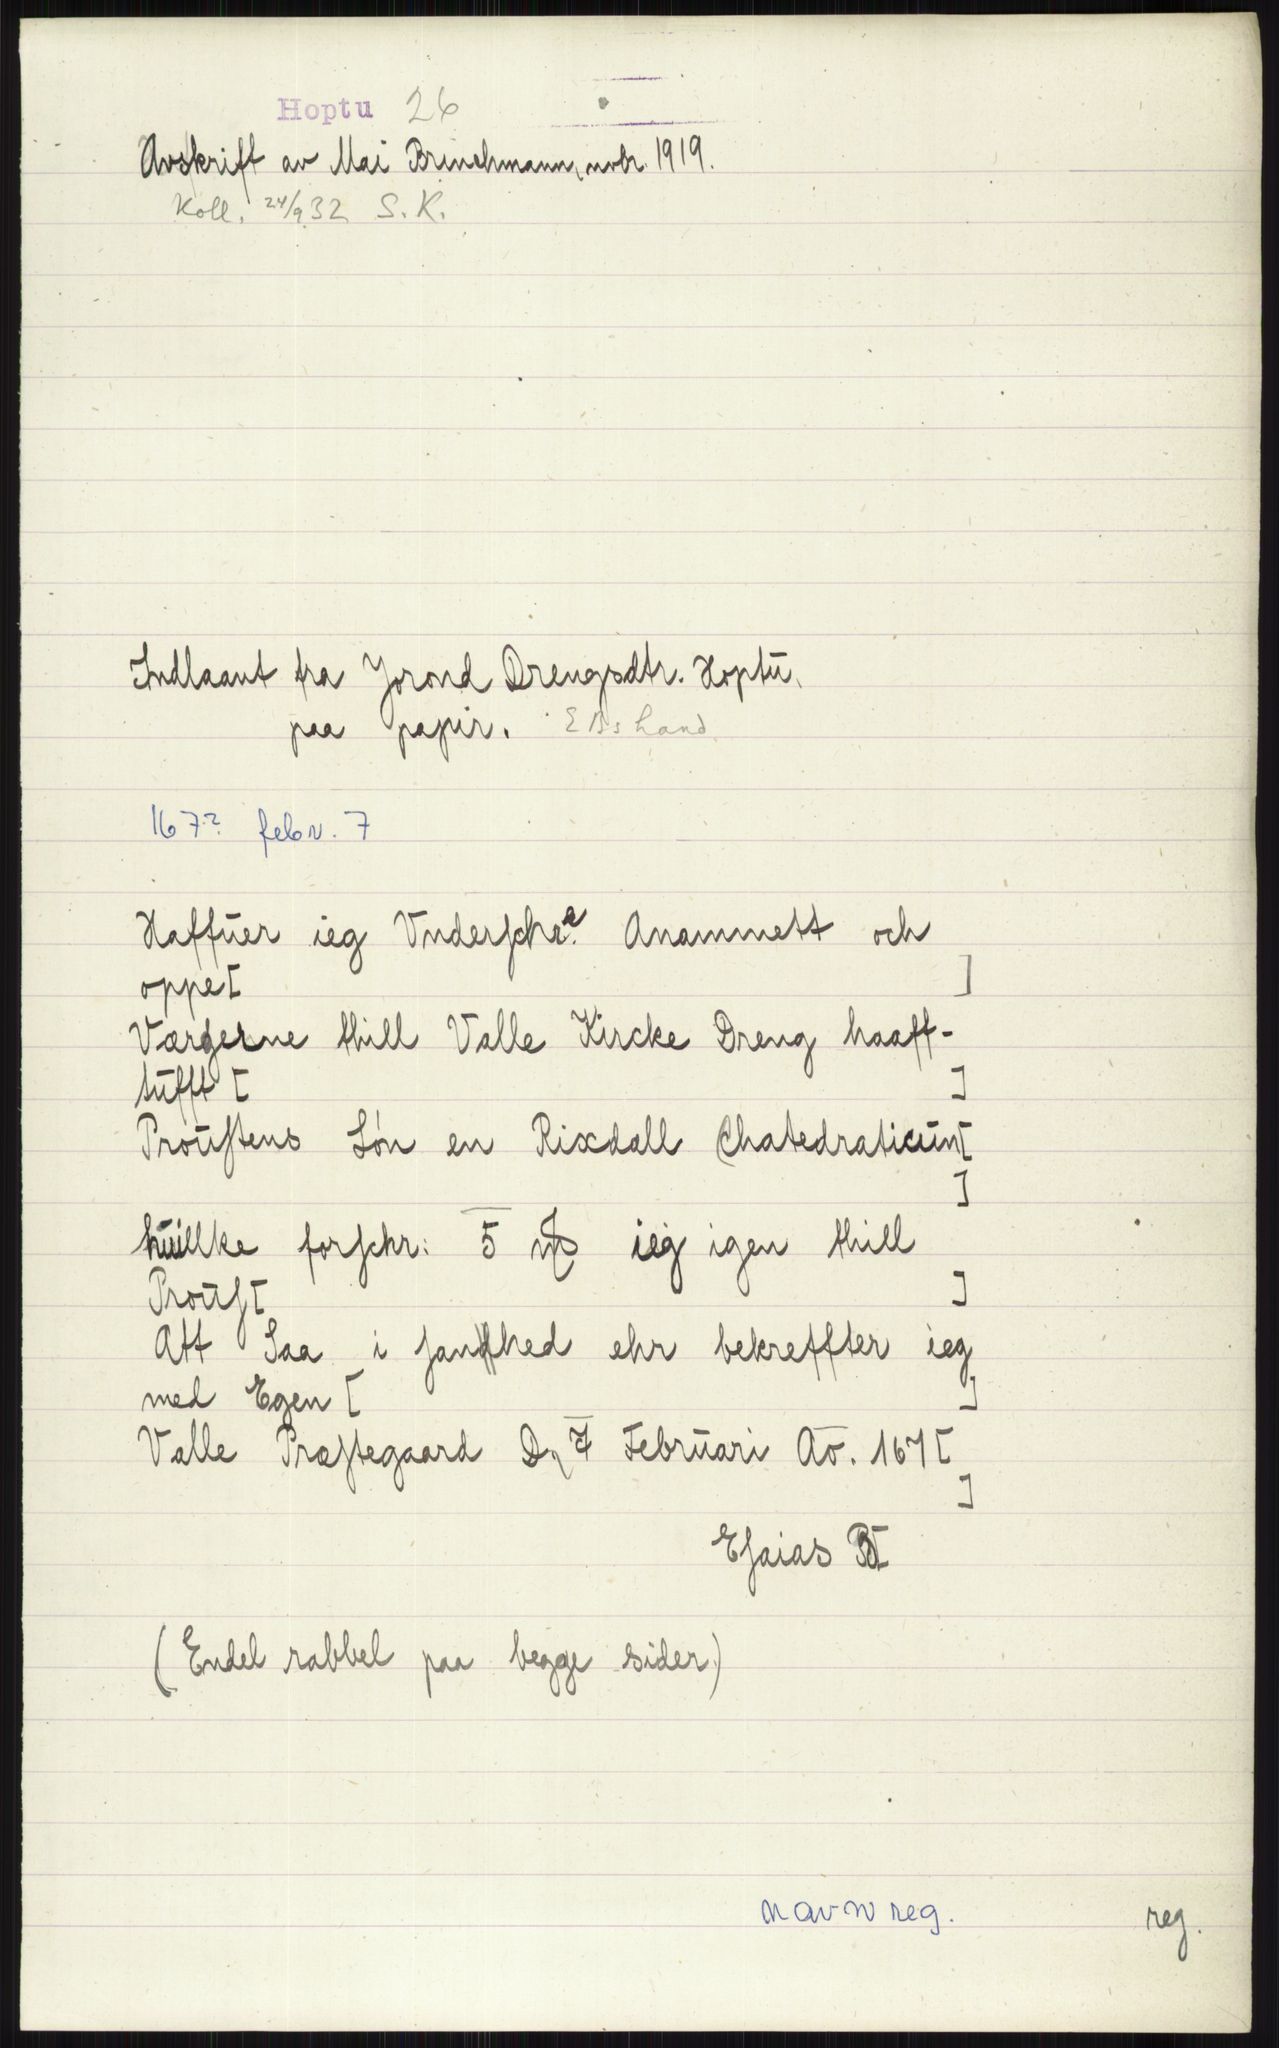 Hoptu 26
Avskrift av Mai Brinchmann, novbr. 1919.
Koll. 24/9 32 S. K.
Indlaant fra Jorond Drengsdtr. Hoptu,
paa papir. EBs hand
167? febr. 7
Haffuer ieg Vnderschre Anammett och
oppe[ ]
Værgerne thill Valle Kircke Dreng haaff-
tufft [ ]
Proustens Søn en Rixdall Chatedraticum[
]
huillke forschr: 5 ieg igen thill
Proust[ ]
Att Saa i sandhed ehr bekreffter ieg
med Egen [ ]
Valle Præstegaard D. 7 Februari Ao. 167[
]
Esaias B[
(Endel rabbel paa begge sider)
navnreg.
reg.